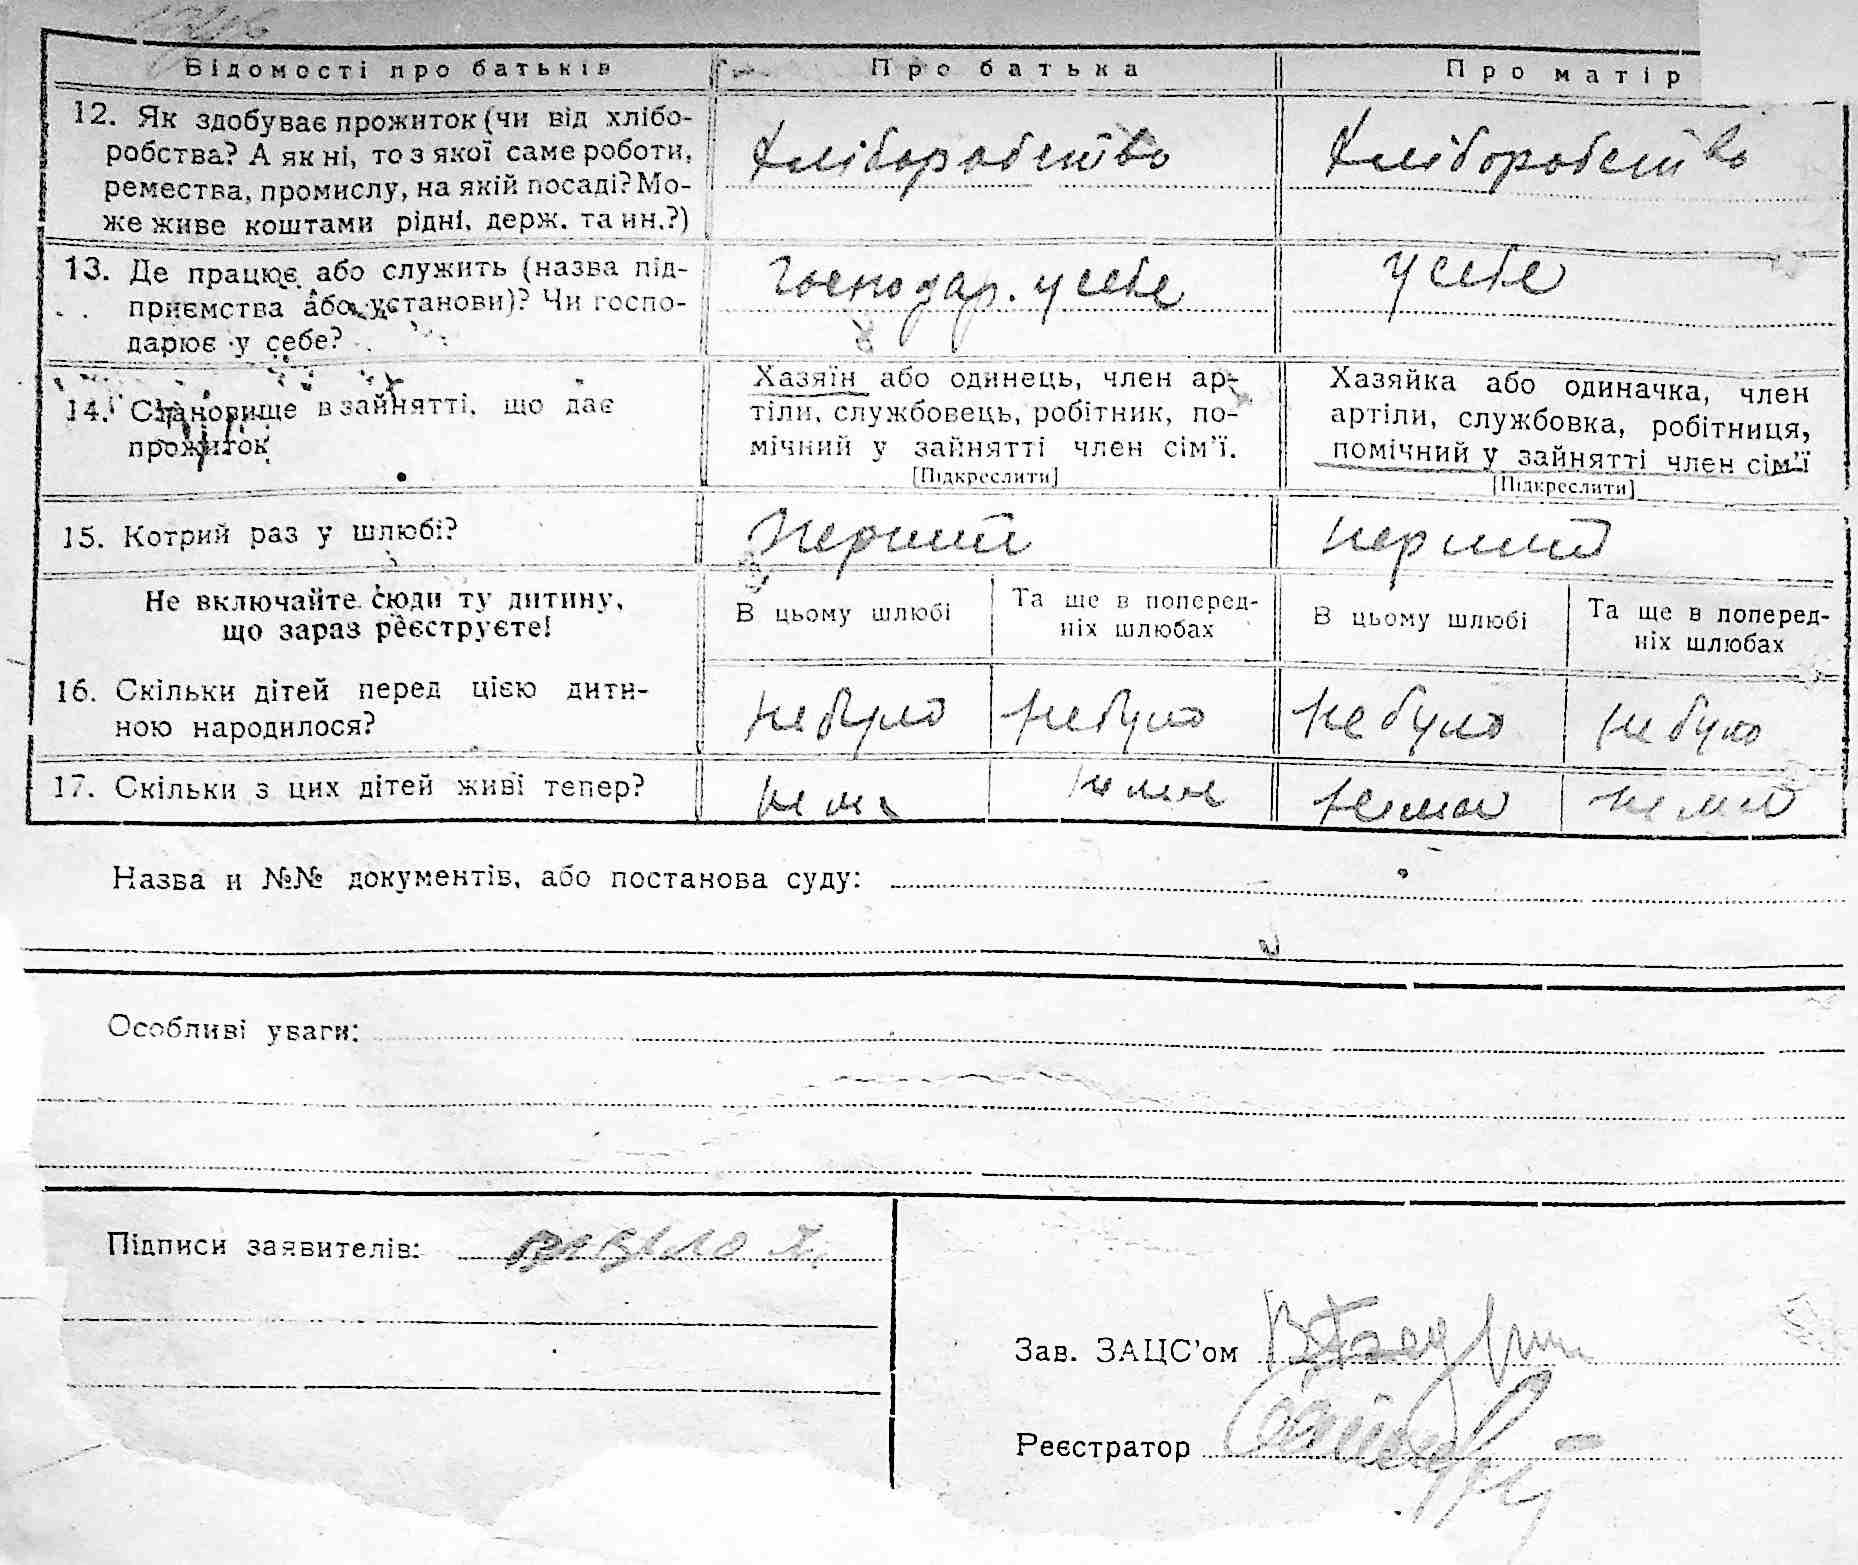 Відомості про батьків Про батька Про матір
12. Як здобуває прожиток (чи від хлібо-
робства? А як ні, то з якої саме роботи,
ремества, промислу, на якій посаді? Мо-
же живе коштами рідні, держ. та ин.?)
Хліборобство Хліборобство
13. Де працює або служить (назва під-
приємства або установи)? Чи госпо-
дарює у себе?
господар. у себе у себе
14. Становище в зайнятті, що дає
прожиток
Хазяїн або одинець, член ар-
тіли, службовець, робітник, по-
мічний у зайнятті член сім'ї.
[Підкреслити]
Хазяйка або одиначка, член
артіли, службовка, робітниця,
помічний у зайнятті член сім'ї
[Підкреслити]
15. Котрий раз у шлюбі? перший перший
Не включайте сюди ту дитину,
що зараз реєструєте!
В цьому шлюбі
Та ще в поперед-
ніх шлюбах
В цьому шлюбі
Та ще в поперед-
ніх шлюбах
16. Скільки дітей перед цією дити-
ною народилося?
не було не було не було не було
17. Скільки з цих дітей живі тепер? нема нема нема нема
Назва и №№ документів, або постанова суду:
Особливі уваги:
Підписи заявителів:
Зав. ЗАЦС'ом
Реєстратор